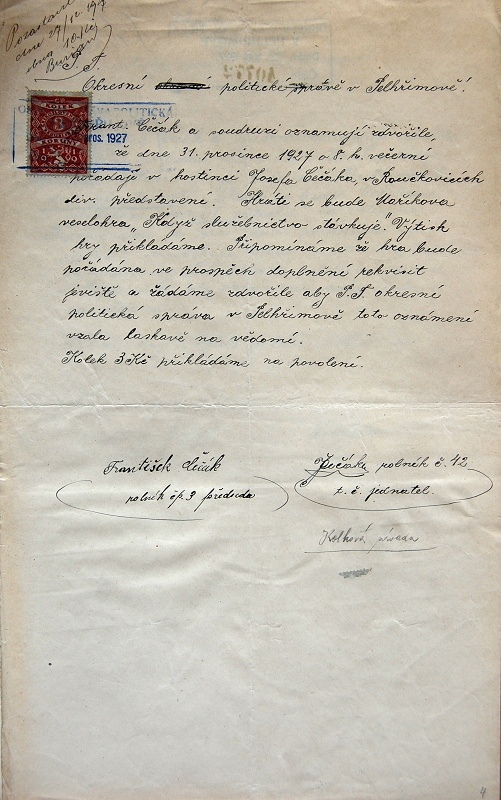 dne 29/12 1927
P. T.
Okresní politické správě v Pelhřimově!
Frant. Čečák a soudruzi oznamují zdvořile,
pros. 1927
KOLEK
že dne 31. prosince 1927 o 8. h. večerní
pořádají v hostinci Josefa Čečáka, v Roučkovicích
div. představení. Hráti se bude Maříkova
veselohra „Když služebnictvo stávkuje." Výtisk
hry přikládáme. Připomínáme že hra bude
pořádána ve prospěch doplnění rekvisit
jeviště a žádáme zdvořile aby P. T. okresní
politická správa v Pelhřimově toto oznámení
vzala laskavě na vědomí.
Kolek 3 Kč přikládáme na povolení.
František Čečák
rolník čp. 9 předseda
Ječák, rolník č. 42
t. č. jednatel.
Kolková
4